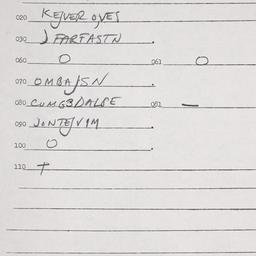 020 KEJVER OJVES
030 J FARTASTN.
060 O 061 O
070 OMBAJSN.
080 CUMGBDALSE 081 —
090 JONTEJVIM.
100 O.
110 +